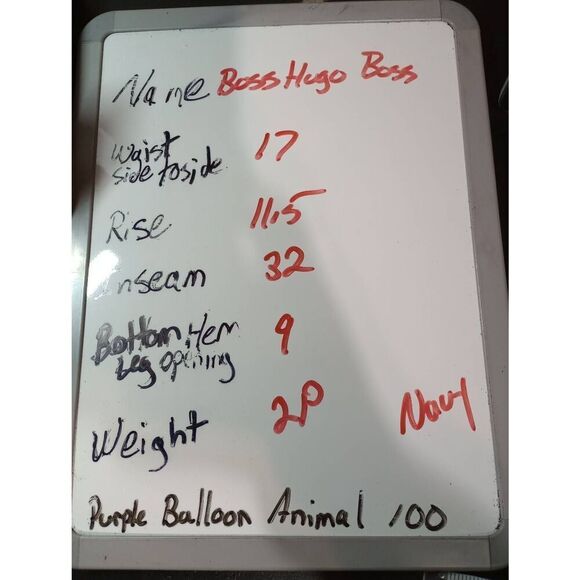 Name Boss Hugo Boss
Waist side to side 17
Rise 11.5
Inseam 32
Bottom Hem Leg opening 9
Weight 2P Navy
Purple Balloon Animal 100